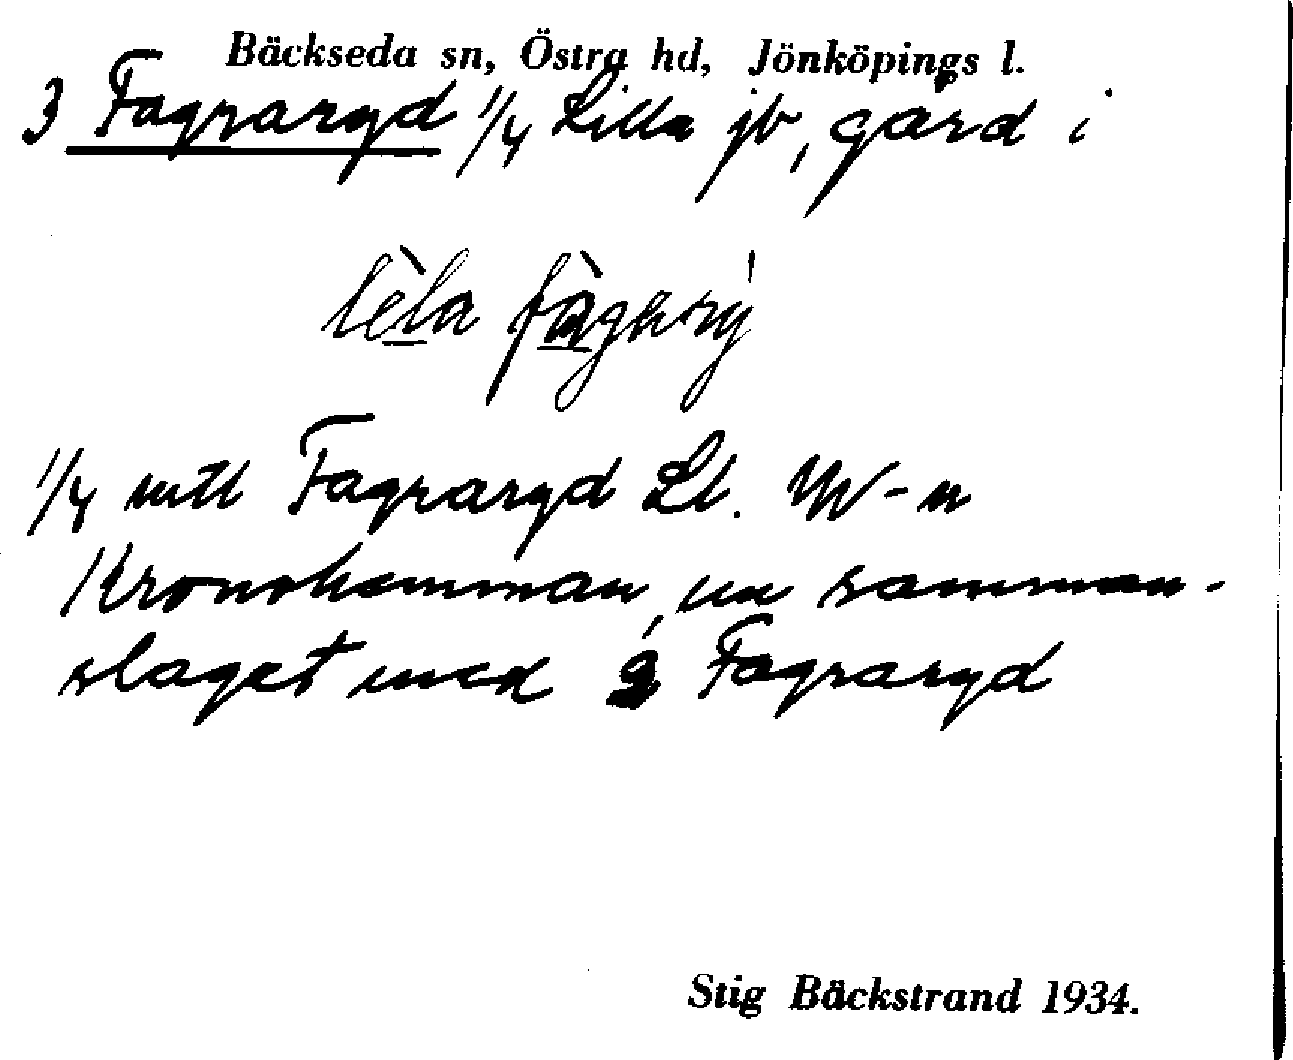 Bäckseda sn, Östra hd, Jönköpings l.
3 Fagraryd 1/4 Lilla jb, gård i
lèla fàgarý
1/4 mtl Fagraryd Ll. W-n
Kronohemman, nu samman-
slaget med 2 Fagraryd
Stig Bäckstrand 1934.